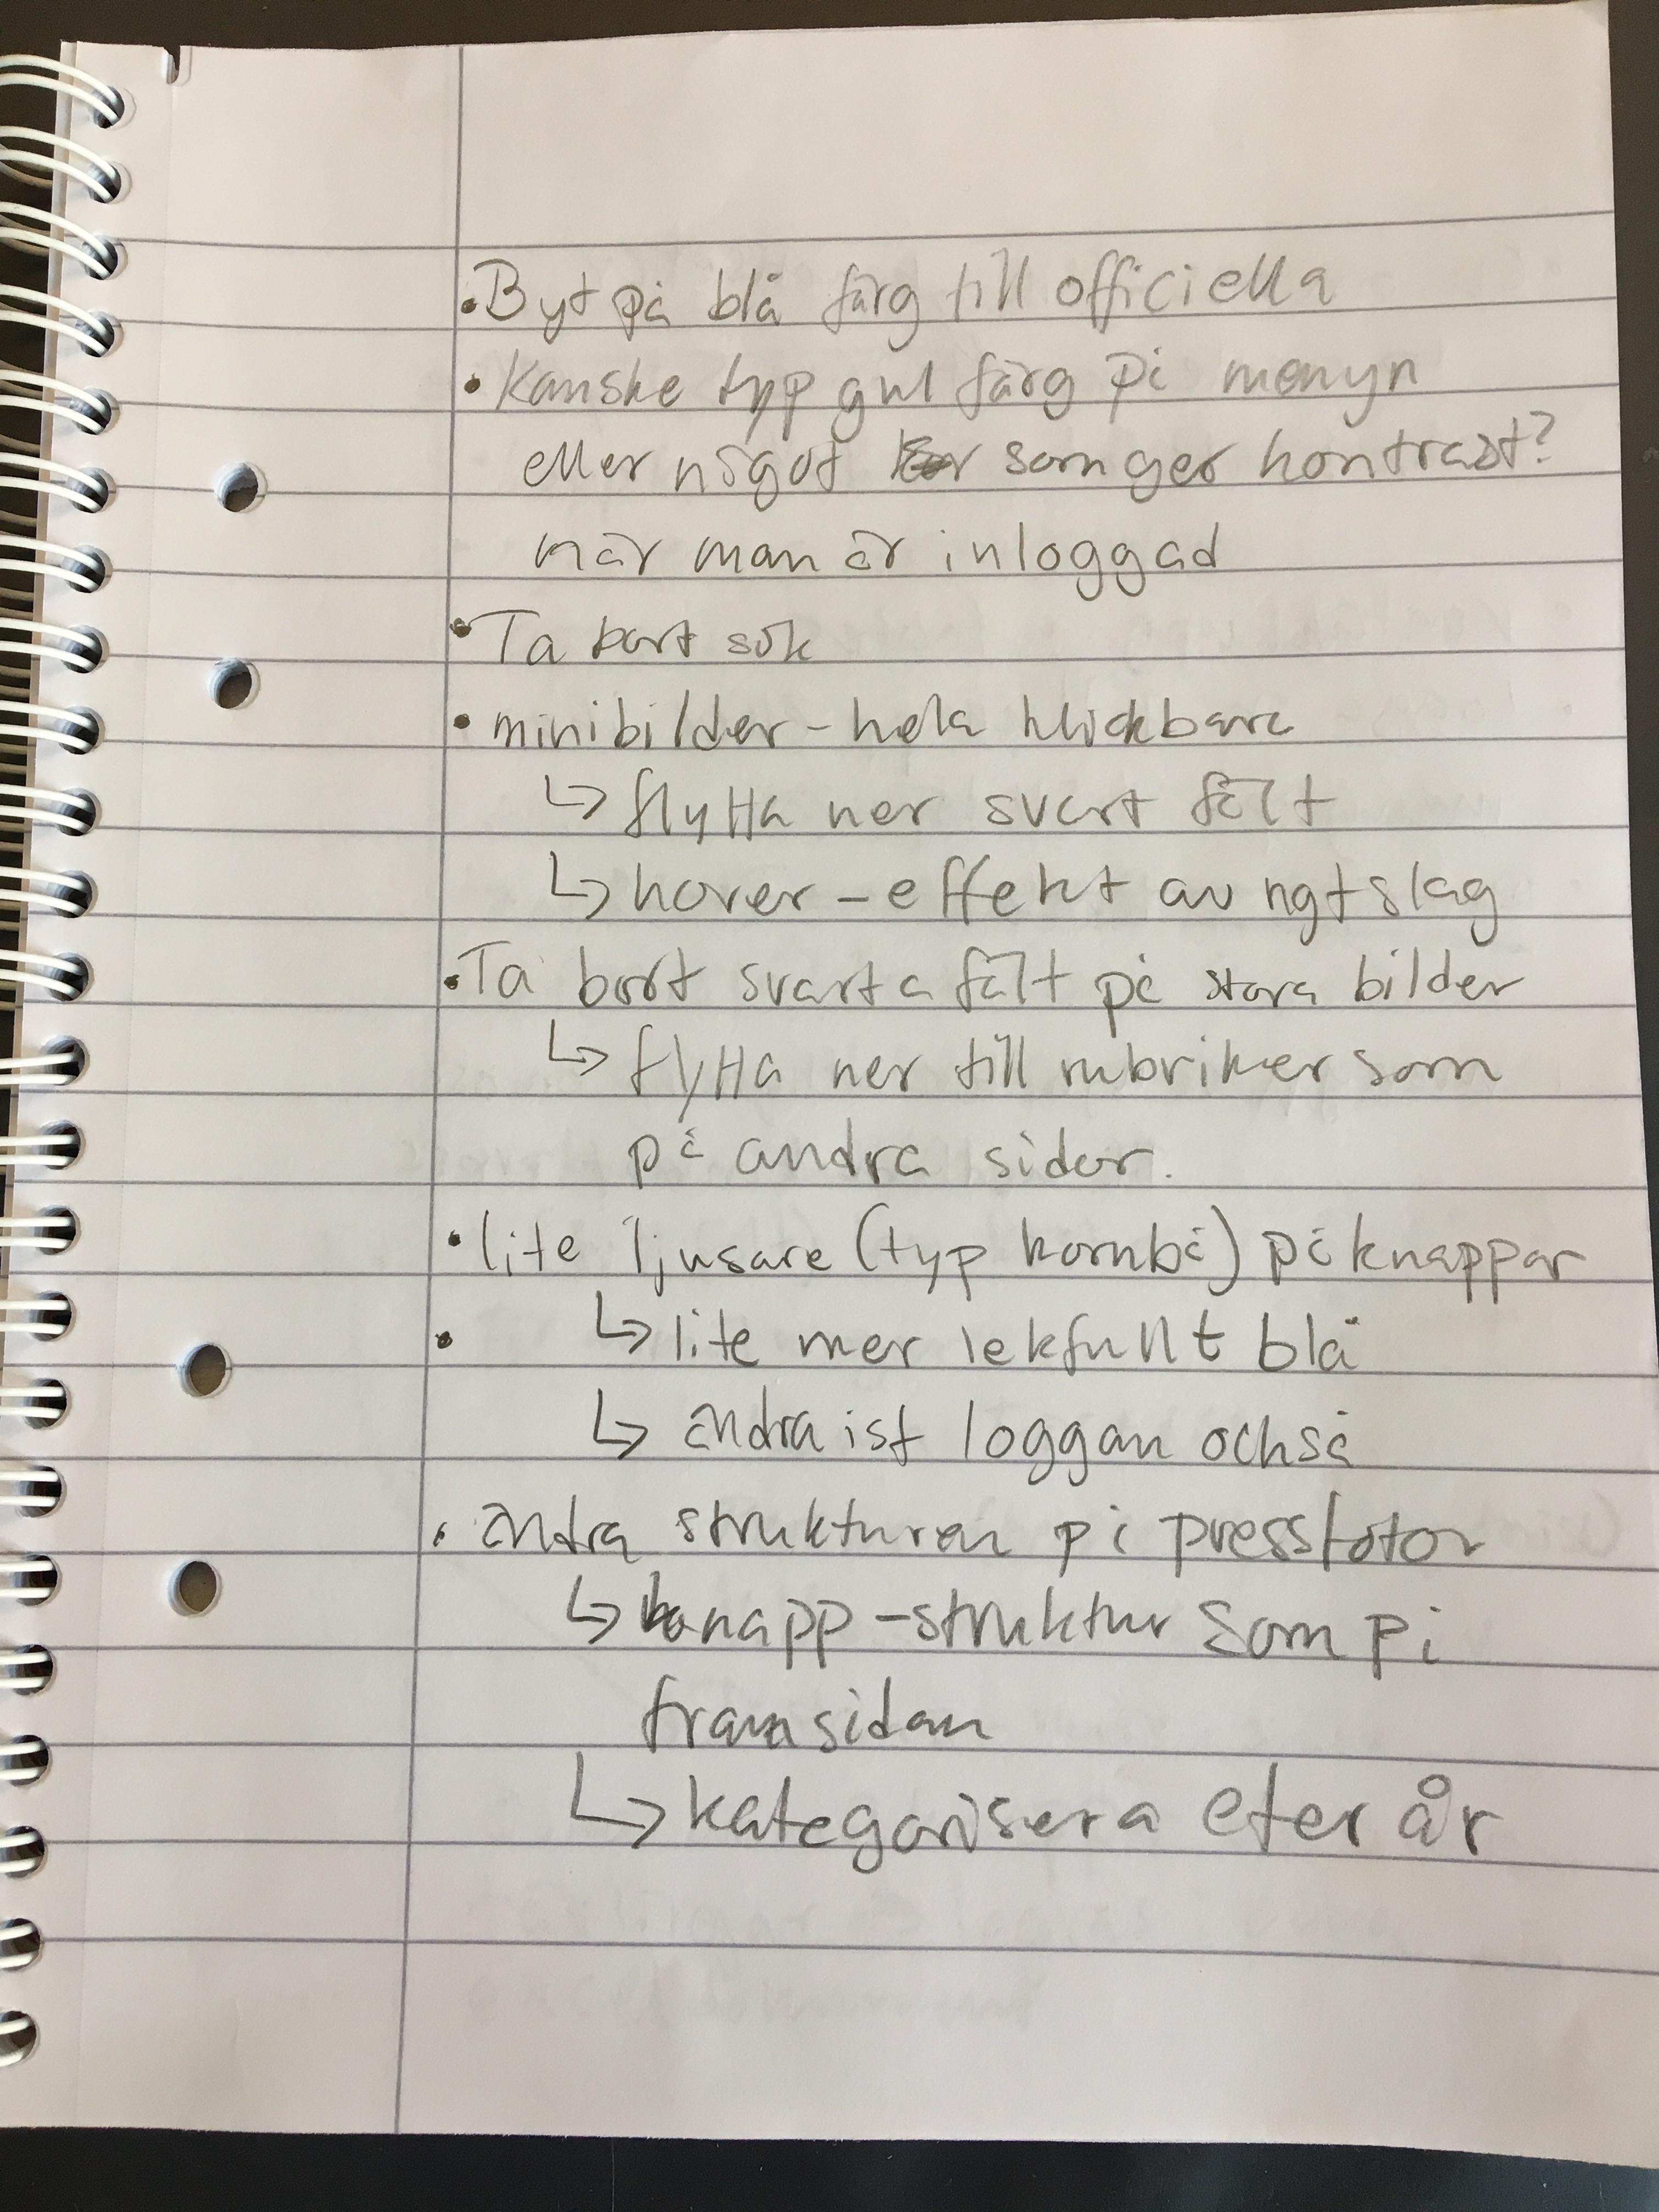 • Byt på blå färg till officiella
• Kanske typ gul färg på menyn
eller något som ger kontrast?
när man är inloggad
• Ta bort sök
• minibilder - hela klickbara
↳ flytta ner svart fält
↳ hover - effekt av ngt slag
• Ta bort svarta fält på stora bilder
↳ flytta ner till rubriker som
på andra sidor.
• lite ljusare (typ kornblå) på knappar
• ↳ lite mer lekfullt blå
↳ ändra ist loggan också
• ändra strukturen på pressfotor
↳ knapp - struktur som på
framsidan
↳ kategorisera efter år